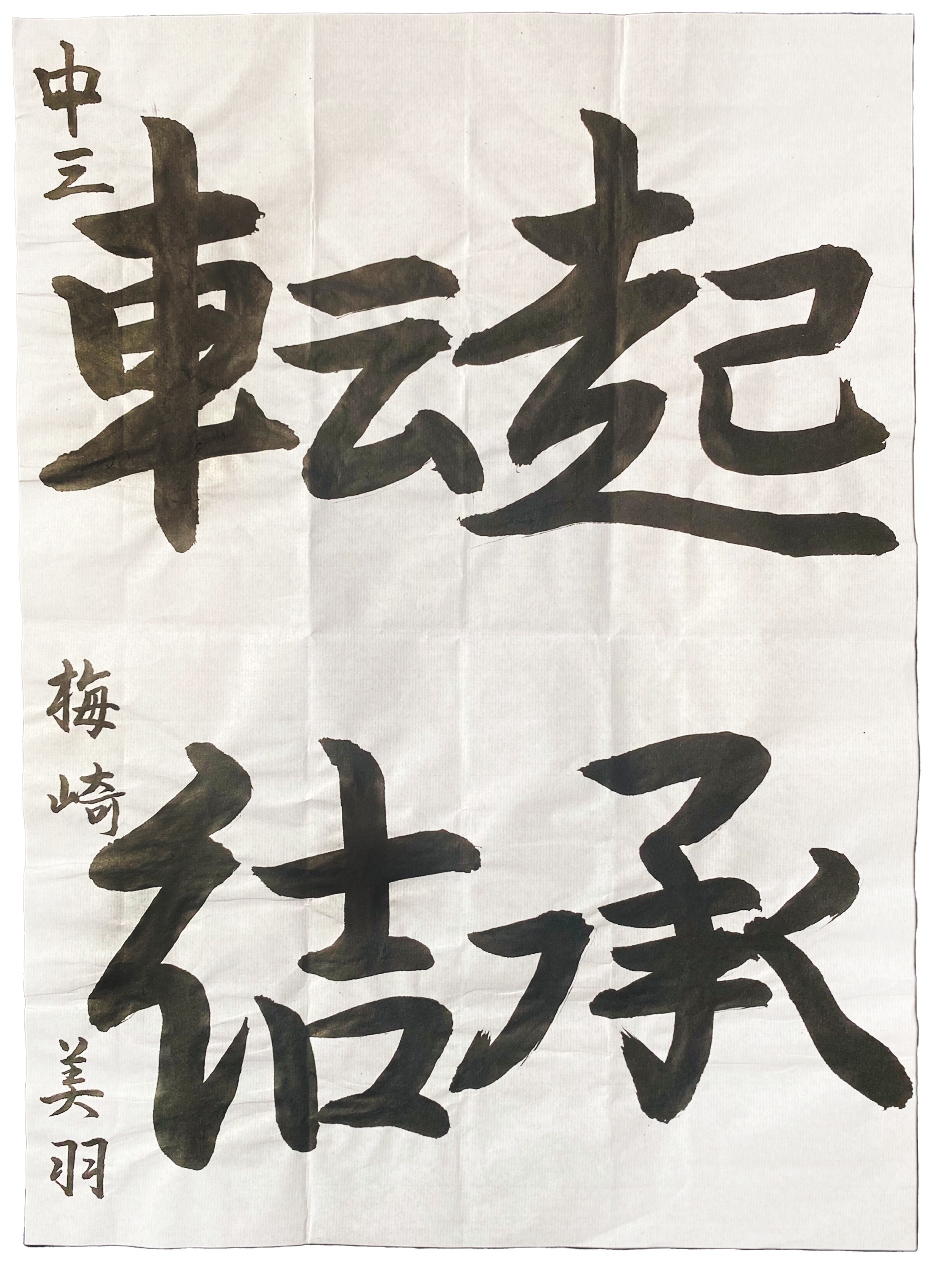 起承
転結
中三 梅崎美羽